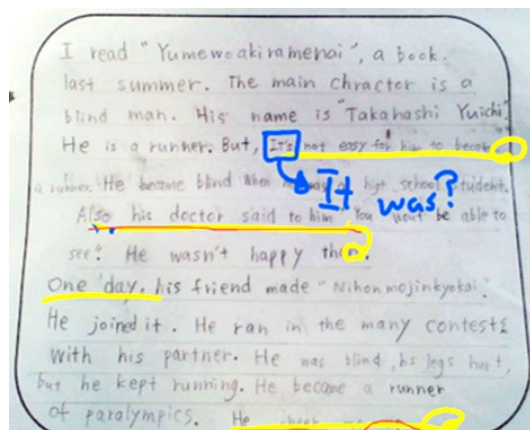 I read "Yumewoakiramenai", a book.
last summer. The main chractor is a
blind man. His name is "Takahashi Yuichi"
He is a runner. But, It's not easy for him to become
It was?
a runner. He became blind When he was a high school student.
Also his doctor said to him "You won't be able to
see". He wasn't happy then.
One day, his friend made "Nihonmojinkyokai".
He joined it. He ran in the many contests
With his partner. He was blind, his legs hurt,
but he kept running. He became a runner
of paralympics. He cheer